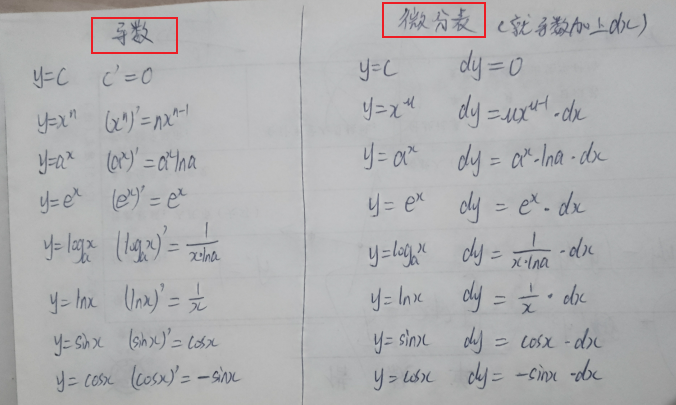 导数
y=C  C'=0
y=xⁿ  (xⁿ)'=nxⁿ⁻¹
y=aˣ  (aˣ)'=aˣlna
y=eˣ  (eˣ)'=eˣ
y=logₐx  (logₐx)'=1/(x·lna)
y=lnx  (lnx)'=1/x
y=sinx  (sinx)'=cosx
y=cosx  (cosx)'=-sinx
微分表 (就导数加上dx)
y=C  dy=0
y=x^u  dy=ux^(u-1)·dx
y=aˣ  dy=aˣ·lna·dx
y=eˣ  dy=eˣ·dx
y=logₐx  dy=1/(x·lna)·dx
y=lnx  dy=1/x·dx
y=sinx  dy=cosx·dx
y=cosx  dy=-sinx·dx